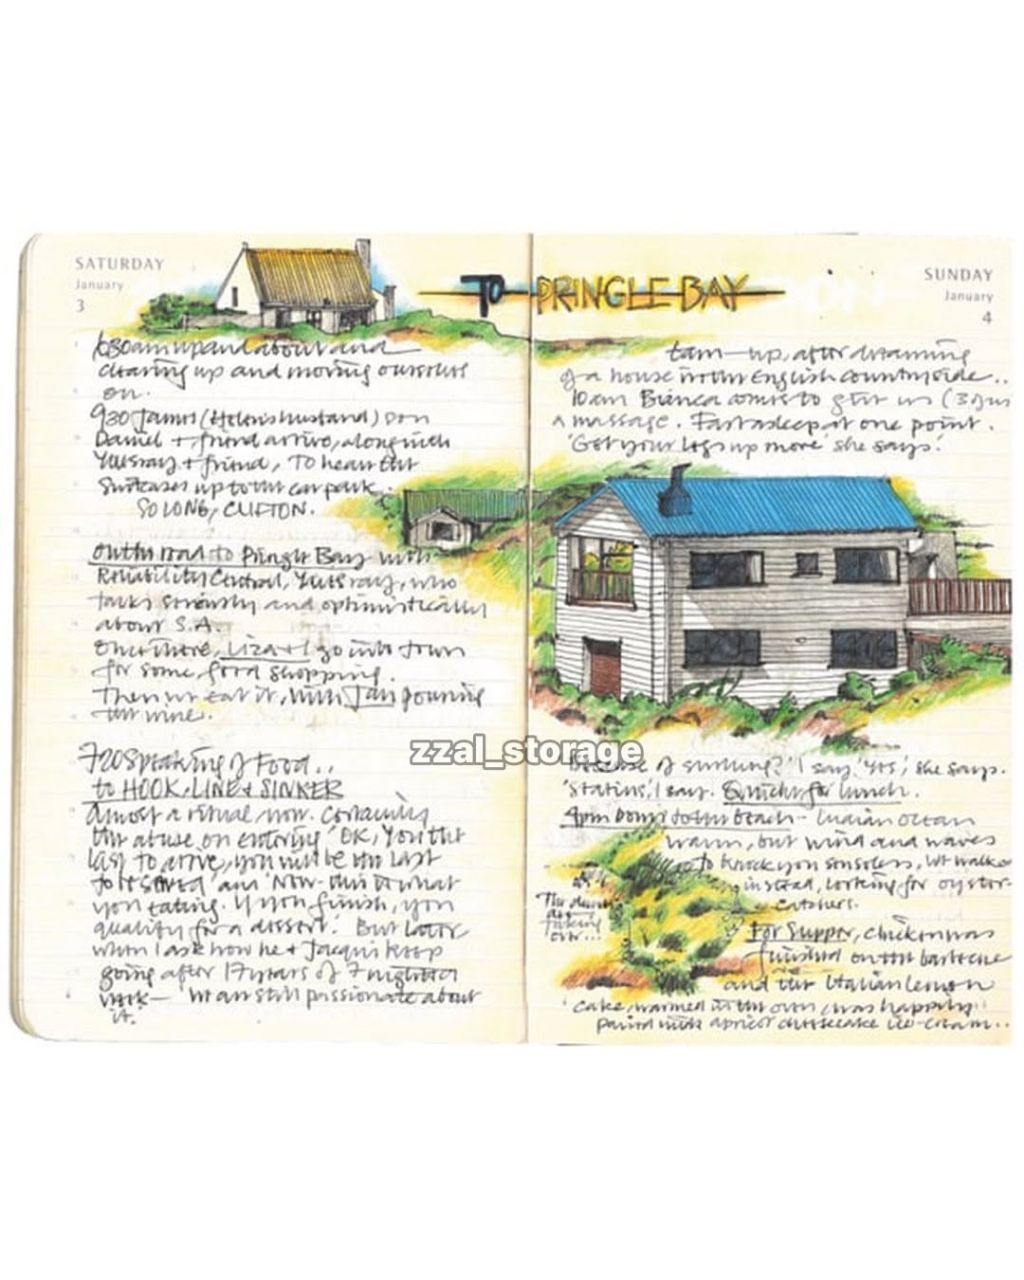 SATURDAY
January
3
TO PRINGLE BAY
SUNDAY
January
4
up and about and
clearing up and moving ourselves
on.
930 James (Helen's husband) son
Daniel + friend arrive, along with
+ friend, To heave the
Suitcases up to the car park.
SO LONG, CLIFTON.
On the road to Pringle Bay with
Reliability Central, who
talks seriously and optimistically
about S.A.
Once there, Liza + I go into town
for some food shopping.
Then we eat it, with Jan pouring
the wine.
720 Speaking of Food..
to HOOK, LINE + SINKER
Almost a ritual now. Certainly
the abuse on entering 'OK, You the
last to arrive, you will be the last
to be served' and 'Now this is what
you eating. If you finish, you
qualify for a dessert.' But later
when I ask how he + Jacqui keep
going after 17 years of 7 nights a
week — 'We are still passionate about
it.'
up, after dreaming
of a house in the English countryside..
10am Bianca comes to give us (3 of us)
a massage. Fast asleep at one point.
'Get your legs up more' she says.
zzal_storage
Because of surfing?' I say. 'Yes,' she says.
'Statins,' I say. Quiche for lunch.
4pm Down to the beach - Indian Ocean
warm, but wind and waves
to knock you senseless. We walk
instead, looking for oyster-
catchers.
The dunes
are
taking
over...!
For Supper, chicken was
finished on the barbecue
and the Italian lemon
cake, warmed in the oven, was happily
paired with apricot cheesecake ice-cream..